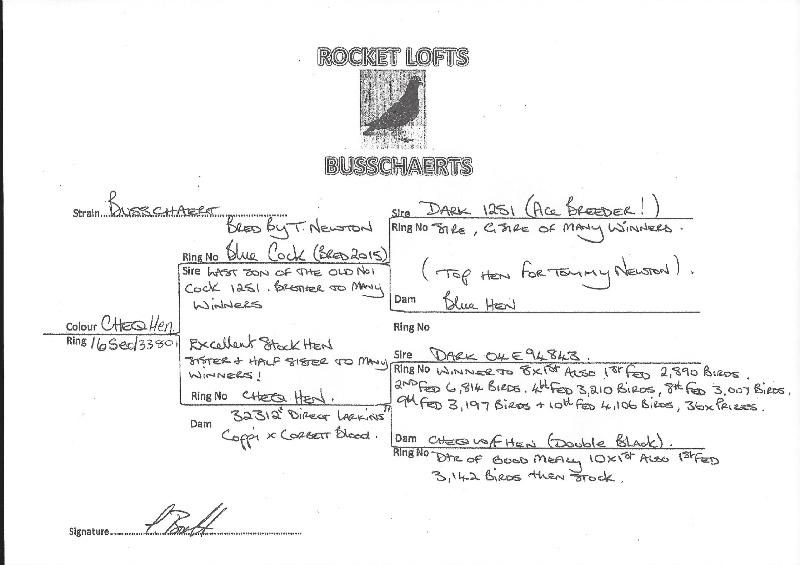 ROCKET LOFTS
BUSSCHAERTS
Strain BUSSCHAERT
BRED BY T. NEWTON
Ring No Blue Cock (BRED 2015)
Sire LAST SON OF THE OLD NO1
COCK 1251. BROTHER TO MANY
WINNERS
Sire DARK 1251 (ACE BREEDER!)
Ring No SIRE, G.SIRE OF MANY WINNERS.
(TOP HEN FOR TOMMY NEWTON).
Dam Blue HEN
Ring No
Colour CHEQ Hen.
Ring 16 Sec/33801
Excellent STOCK HEN
SISTER + HALF SISTER TO MANY
WINNERS!
Ring No CHEQ HEN.
Dam 32312" DIRECT LARKINS"
COPPI x CORBETT BLOOD.
Sire DARK 04E94843.
Ring No WINNER TO 8x1st ALSO 1st FED 2,890 BIRDS.
2ND FED 6,814 BIRDS. 4th FED 3,210 BIRDS, 8th FED 3,007 BIRDS.
9th FED 3,197 BIRDS + 10th FED 4,106 BIRDS, 36x PRIZES.
Dam CHEQ W/F HEN (Double Black).
Ring No DTR OF GOOD MEALY 10x1st ALSO 1st FED
3,142 BIRDS THEN STOCK.
Signature